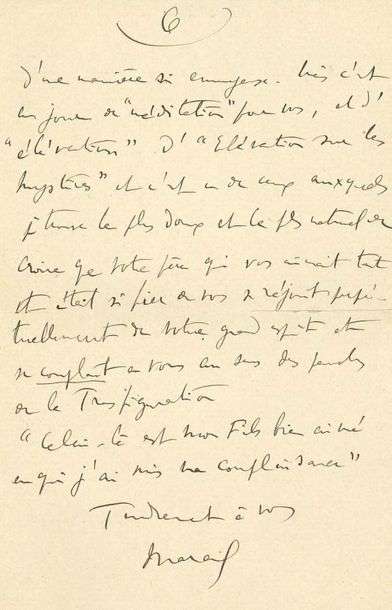 6
d'une manière si ennuyeuse. Mais c'est
un jour de "méditation" pour vos, et d'
"élévations". D' "Elévation sur les
mystères" et c'est un de ceux auxquels
je trouve le plus doux et le plus naturel de
croire que votre père qui vos aimait tant
et était si fier de vos se réjouit perpé-
tuellement de votre grand esprit et
se complait en vous au sens des paroles
de la Transfiguration
"Celui-là est mon Fils bien aimé
en qui j'ai mis ma complaisance"
Tendrement à vos
Marcel